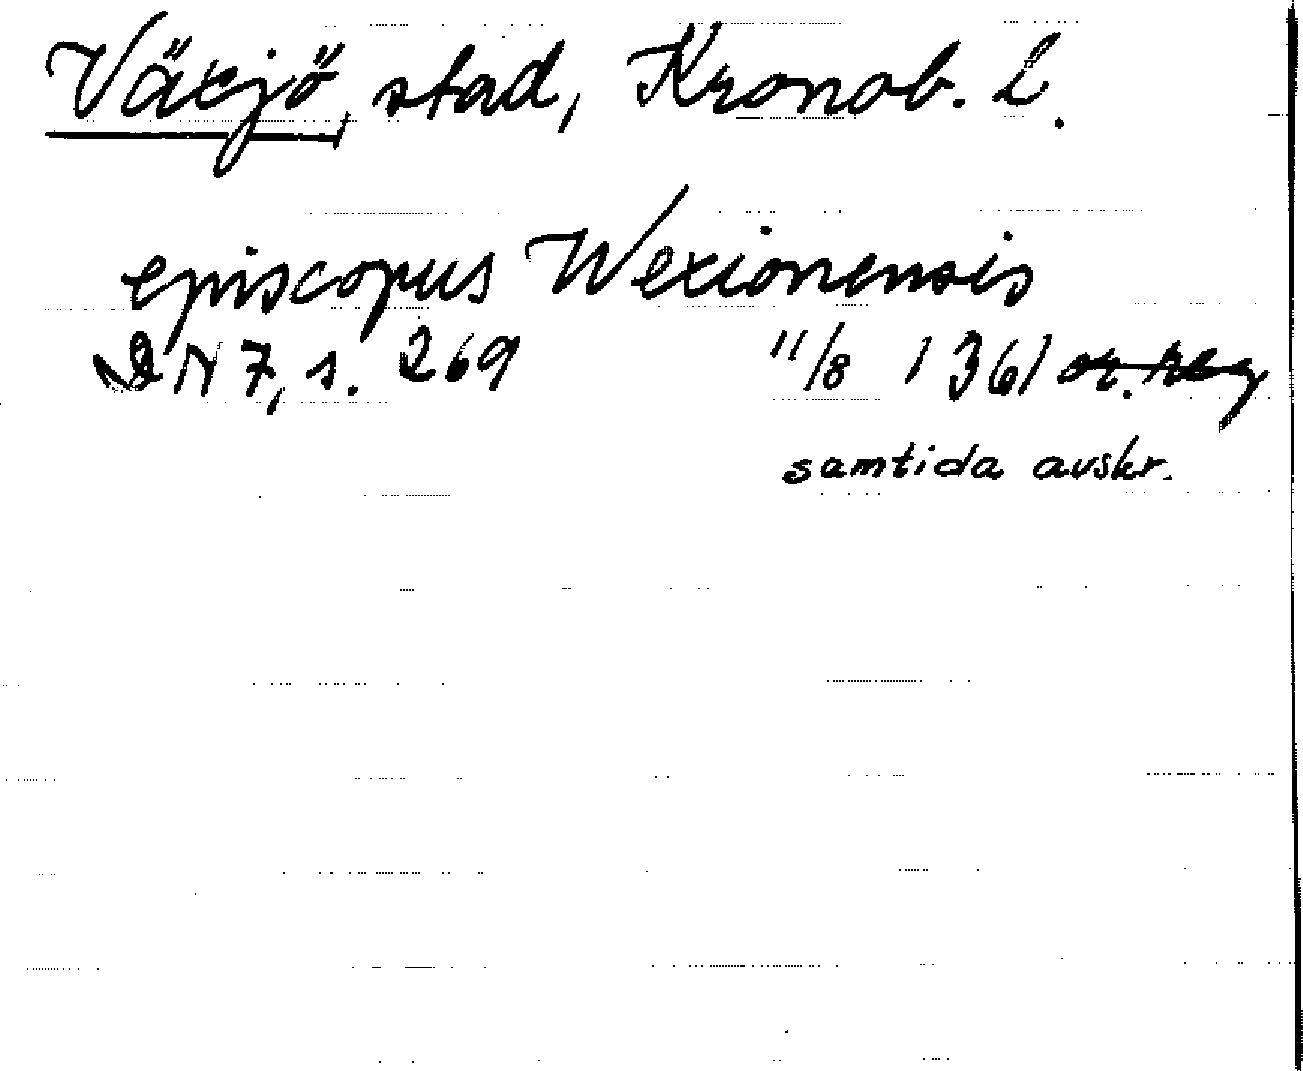 Växjö, stad, Kronob. l.
episcopus Wexionensis
DN 7, s. 269 11/8 1361 or. reg
samtida avskr.